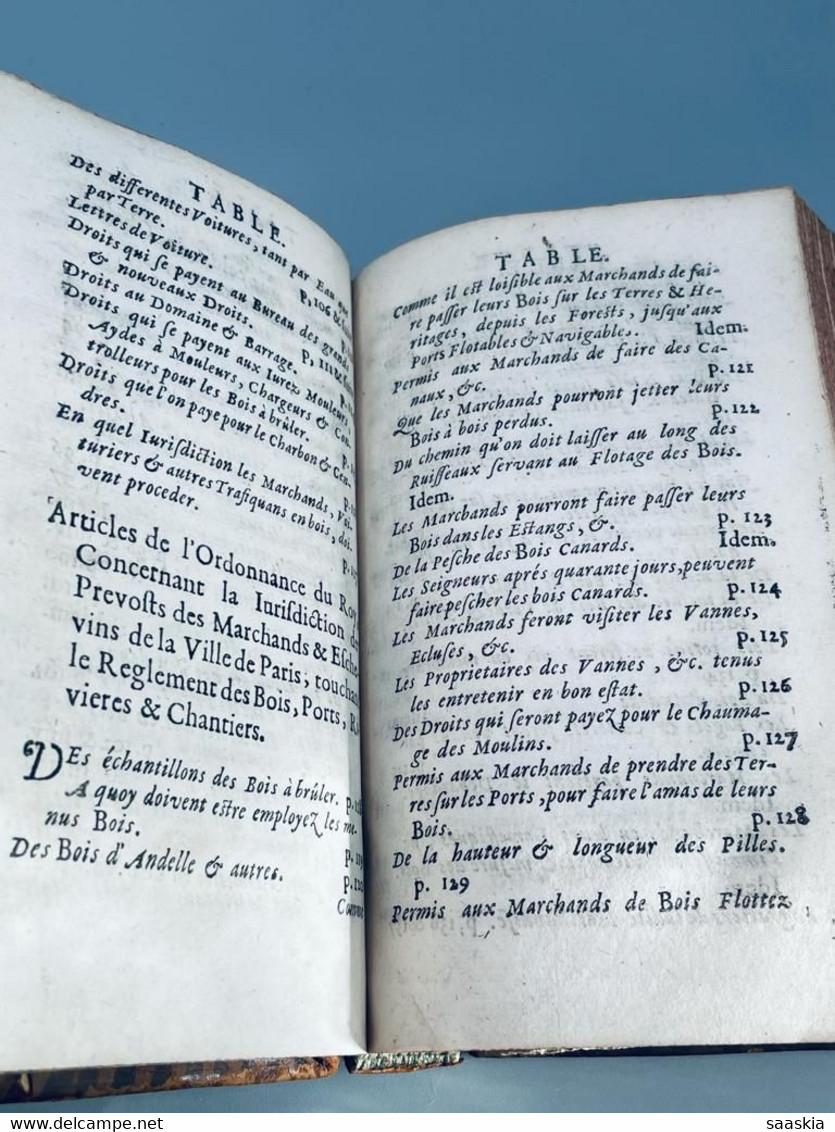 TABLE.
Des differentes Voitures, tant par Eau que
par Terre.
p. 106 &
Lettres de Voiture.
Droits qui se payent au Bureau des grands
& nouveaux Droits.
p. 111 &
Droits au Domaine & Barrage.
Droits qui se payent aux Iurez Mouleurs
Aydes à Mouleurs, Chargeurs & Con-
trolleurs pour les Bois à brûler.
Droits que l'on paye pour le Charbon & Cen-
dres.
En quel Iurisdiction les Marchands, Voi-
turiers & autres Trafiquans en bois, doi-
vent proceder.
Articles de l'Ordonnance du Roy,
Concernant la Iurisdiction des
Prevosts des Marchands & Esche-
vins de la Ville de Paris; touchant
le Reglement des Bois, Ports, Ri-
vieres & Chantiers.
DEs échantillons des Bois à brûler.
A quoy doivent estre employez les me-
nus Bois.
p. 119
Des Bois d'Andelle & autres.
p. 120
Comme
TABLE.
Comme il est loisible aux Marchands de fai-
re passer leurs Bois sur les Terres & He-
ritages, depuis les Forests, jusqu'aux
Ports Flotables & Navigables. Idem.
Permis aux Marchands de faire des Ca-
naux, &c. p. 121
Que les Marchands pourront jetter leurs
Bois à bois perdus. p. 122
Du chemin qu'on doit laisser au long des
Ruisseaux servant au Flotage des Bois.
Idem.
Les Marchands pourront faire passer leurs
Bois dans les Estangs, &. p. 123
De la Pesche des Bois Canards. Idem.
Les Seigneurs aprés quarante jours, peuvent
faire pescher les bois Canards. p. 124
Les Marchands feront visiter les Vannes,
Ecluses, &c. p. 125
Les Proprietaires des Vannes, &c. tenus
les entretenir en bon estat. p. 126
Des Droits qui seront payez pour le Chauma-
ge des Moulins. p. 127
Permis aux Marchands de prendre des Ter-
res sur les Ports, pour faire l'amas de leurs
Bois. p. 128
De la hauteur & longueur des Pilles.
p. 129
Permis aux Marchands de Bois Flottez
WWW.DELCAMPE.NET
saaskia